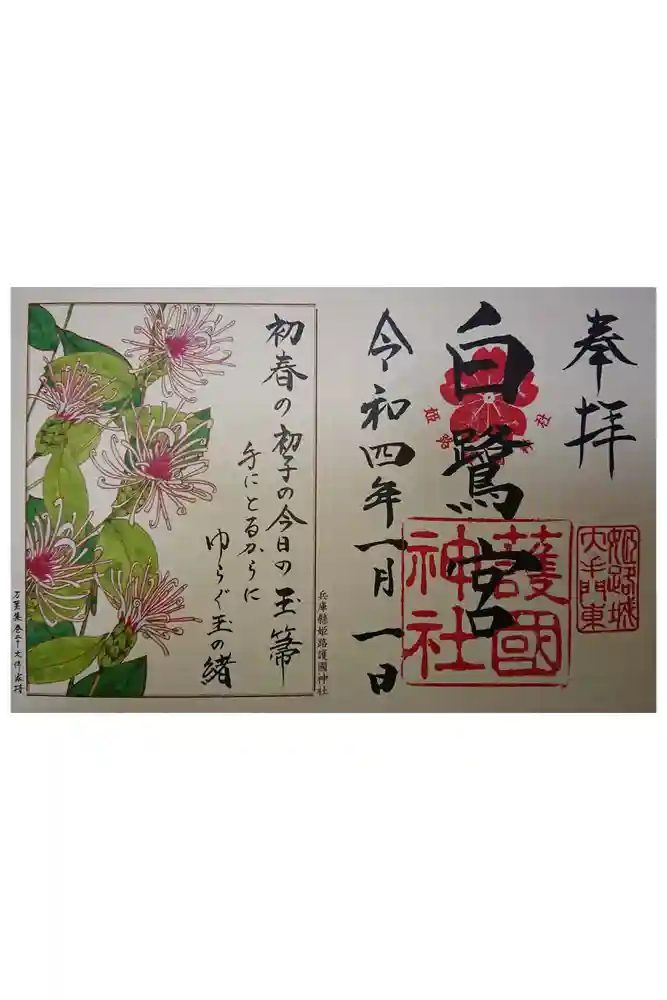 奉拝
姫路城
大手門東
白鷺宮
護國
神社
令和四年一月一日
兵庫縣姫路護國神社
初春の初子の今日の玉箒
手にとるからに
ゆらぐ玉の緒
万葉集巻二十大伴家持